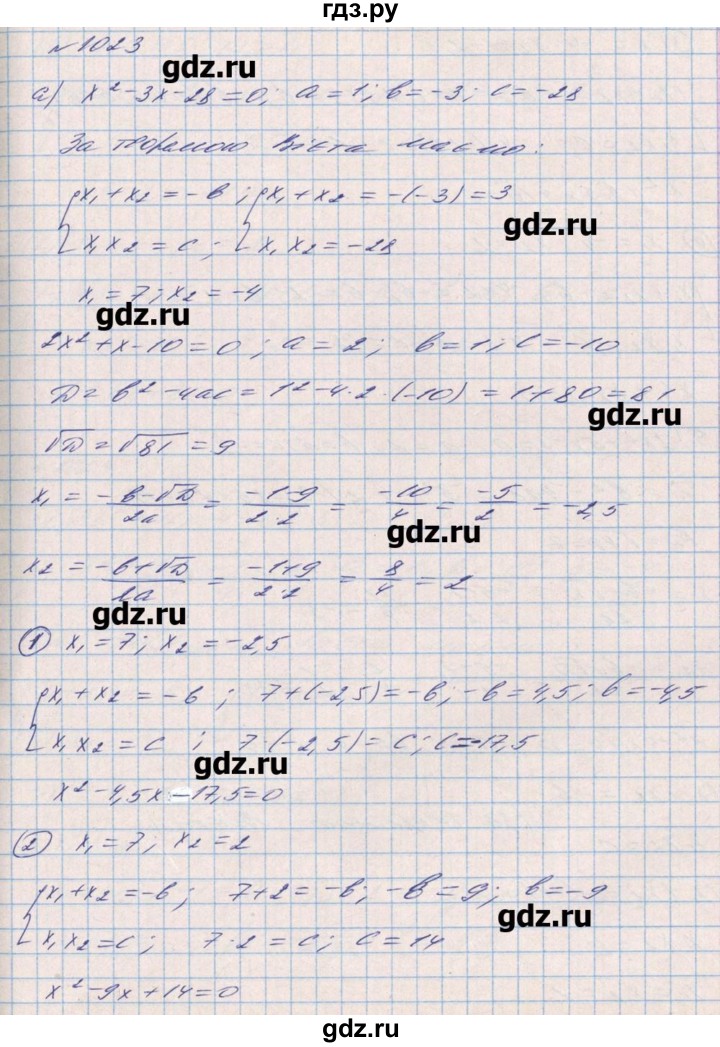 гдз.ру
№1023
gdz.ru
а) x² - 3x - 28 = 0; a = 1; b = -3; c = -28
За теоремою Вієта маємо:
{x₁ + x₂ = -b; {x₁ + x₂ = -(-3) = 3
gdz.ru
{x₁x₂ = c; {x₁x₂ = -28
x₁ = 7; x₂ = -4
gdz.ru
2x² + x - 10 = 0; a = 2; b = 1; c = -10
D = b² - 4ac = 1² - 4·2·(-10) = 1 + 80 = 81
gdz.ru
√D = √81 = 9
x₁ = (-b-√D)/2a = (-1-9)/2·2 = -10/4 = -5/2 = -2,5
gdz.ru
x₂ = (-b+√D)/2a = (-1+9)/2·2 = 8/4 = 2
gdz.ru
① x₁ = 7; x₂ = -2,5
{x₁ + x₂ = -b; 7 + (-2,5) = -b; -b = 4,5; b = -4,5
{x₁x₂ = c; 7·(-2,5) = c; c = -17,5
gdz.ru
x² - 4,5x - 17,5 = 0
② x₁ = 7; x₂ = 2
{x₁ + x₂ = -b; 7 + 2 = -b; -b = 9; b = -9
gdz.ru
{x₁x₂ = c; 7·2 = c; c = 14
x² - 9x + 14 = 0
gdz.ru